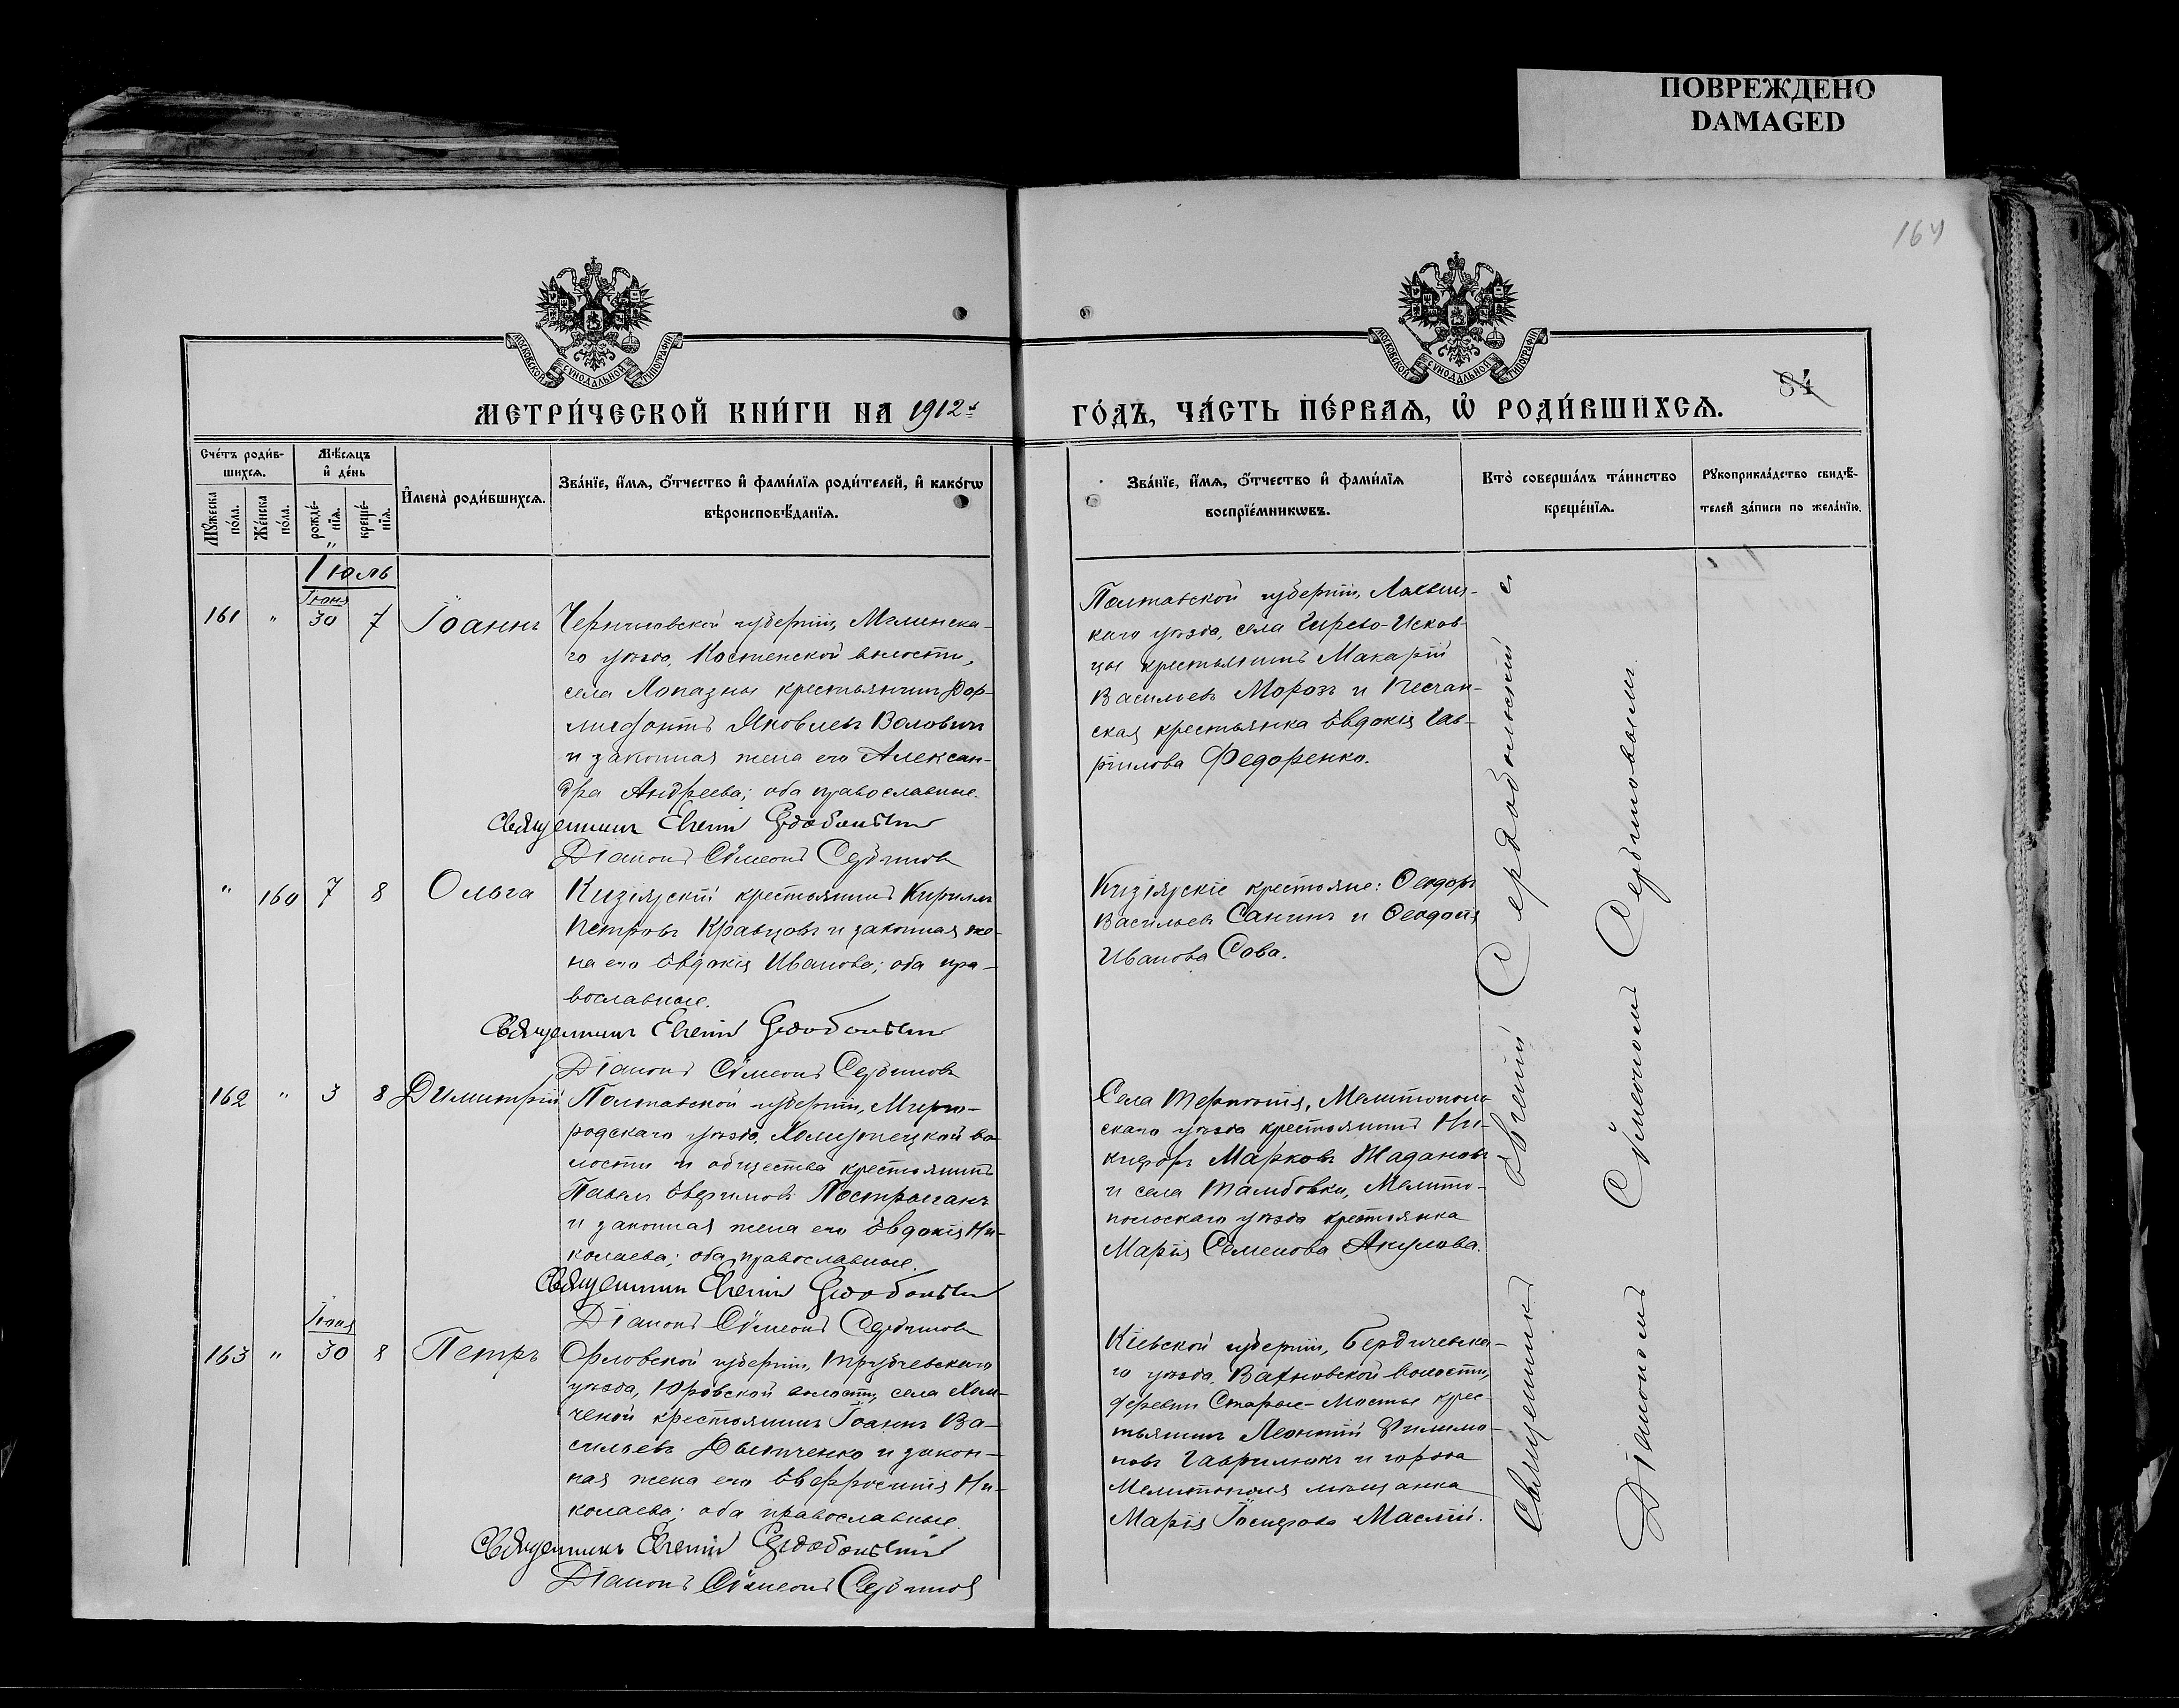 ПОВРЕЖДЕНО
DAMAGED
164
МОСКОВСКОЙ СѴНОДАЛЬНОЙ ТИПОГРАФІИ
МОСКОВСКОЙ СѴНОДАЛЬНОЙ ТИПОГРАФІИ
84
МЕТРИ́ЧЕСКОЙ КНИ́ГИ НА 1912й
ГО́ДЪ, ЧА́СТЬ ПЕ́РВАѦ, Ѡ҆ РОДИ́ВШИХСѦ.
Сче́тъ роди́в-
шихсѧ.
Мꙋ́жеска по́ла.
Же́нска по́ла.
Мѣ́сѧцъ
и҆ де́нь
рожде́-
нїѧ.
креще́-
нїѧ.
И҆мена̀ роди́вшихсѧ.
Зва́нїе, и҆́мѧ, ѻ҆́тчество и҆ фами́лїѧ роди́телей, и҆ како́гѡ
вѣроисповѣ́данїѧ.
Зва́нїе, и҆́мѧ, ѻ҆́тчество и҆ фами́лїѧ
воспрїе́мникѡвъ.
Кто̀ соверша́лъ та́инство
креще́нїѧ.
Рꙋкоприкла́дство свидѣ́-
телей за́писи по жела́нїю.
Іюль
Іюня
161 " 30 7 Іоаннъ
Черниговской губерніи, Мглинска-
го уѣзда, Костенской волости,
села Лопазны крестьянинъ Дор-
Яковлевъ Воловичъ
и законная жена его Алексан-
дра Андреева; оба православные.
Священникъ Евгеній Сердобольскій
Діаконъ Сѵмеонъ
Полтавской губерніи, Лохвиц-
каго уѣзда, села Гирево-Исков-
цы крестьянинъ Макарій
Васильевъ Морозъ и Песчан-
ская крестьянка Евдокія Гав-
ріилова Федоренко.
" 160 7 8 Ольга
Кизіярскій крестьянинъ Кириллъ
Петровъ Кравцовъ и законная же-
на его Евдокія Иванова; оба пра-
вославные.
Священникъ Евгеній Сердобольскій
Діаконъ Сѵмеонъ
Кизіярскіе крестьяне: Ѳеодоръ
Васильевъ Санинъ и Ѳеодосія
Иванова Сова.
162 " 3 8 Димитрій
Полтавской губерніи, Мирго-
родскаго уѣзда, Хомутецкой во-
лости и общества крестьянинъ
Павелъ Евфимовъ
и законная жена его Евдокія Ни-
колаева; оба православные.
Священникъ Евгеній Сердобольскій
Діаконъ Сѵмеонъ
Села Терпѣнія, Мелитополь-
скаго уѣзда крестьянинъ Ни-
кифоръ Марковъ Жадановъ
и села Тамбовки, Мелито-
польскаго уѣзда крестьянка
Марія Семенова Акулова.
Іюня
163 " 30 8 Петръ
Орловской губерніи, Трубчевскаго
уѣзда, Юровской волости, села Хол-
ченой крестьянинъ Іоаннъ Ва-
сильевъ и закон-
ная жена его Евфросинія Ни-
колаева; оба православные.
Священникъ Евгеній Сердобольскій
Діаконъ Сѵмеонъ
Кіевской губерніи, Бердичевска-
го уѣзда, Вахновской волости,
деревни Старые-Мосты крес-
тьянинъ Леонтій Филимо-
новъ Гаврилюкъ и города
Мелитополя мѣщанка
Марія Іосифова Маслій.
Священникъ Евгеній Сердобольскій съ
Діакономъ Сѵмеономъ